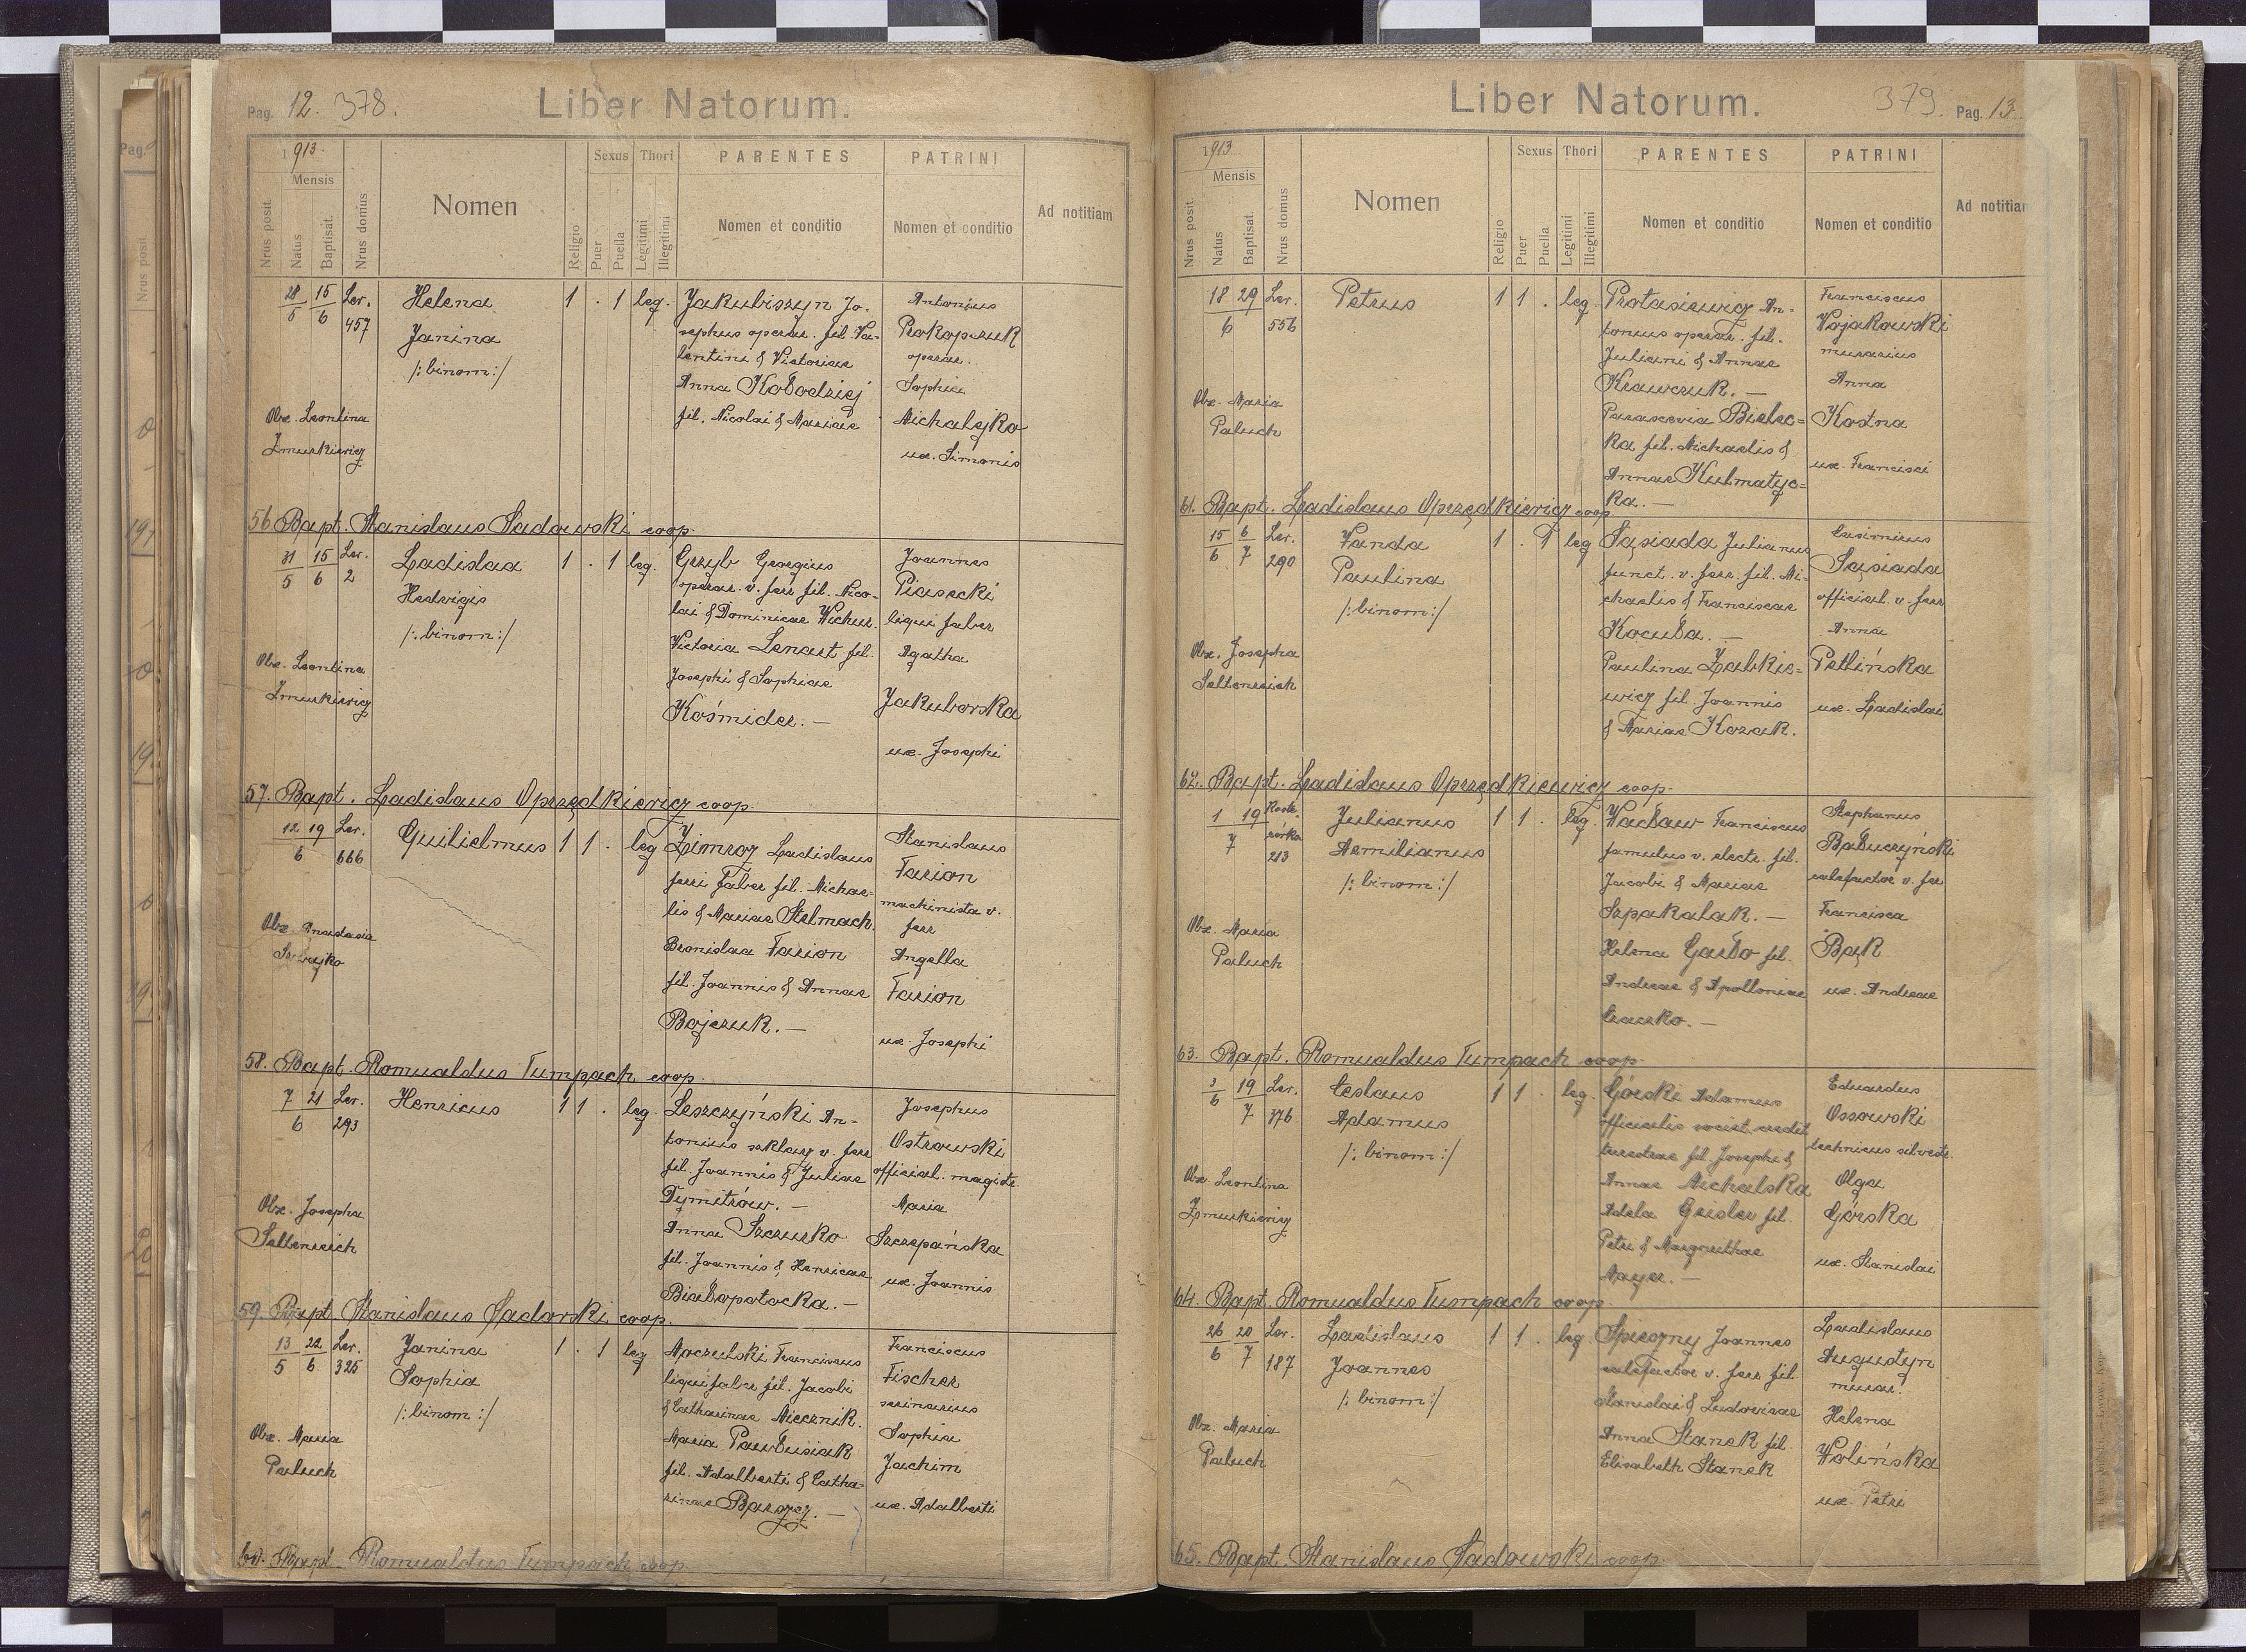 Pag. 12. 378.
Liber Natorum.
1913.
Mensis
Nrus posit.
Natus
Baptisat.
Nrus domus
Nomen
Religio
Sexus
Puer
Puella
Thori
Legitimi
Illegitimi
PARENTES
Nomen et conditio
PATRINI
Nomen et conditio
Ad notitiam
28/5 15/6 Ler. 457
Helena
Janina
/:binom:/
1 . 1 leg.
Jakubiszyn Jo-
sephus operar. fil. Va-
lentini & Victoriae
Anna Kołodziej
fil. Nicolai & Mariae
Antonius
Prokopczuk
operar.
Sophia
Michalejko
ux. Simonis
Obx. Leontina
Żmurkiewicz
56. Bapt. Stanislaus Sadowski coop.
31/5 15/6 Ler. 2
Ladislaa
Hedvigis
/:binom:/
1 . 1 leg.
Grzyb Georgius
operar. v. ferr fil. Nico-
lai & Dominicae Wichur.
Victoria Lenart fil.
Josephi & Sophiae
Kośmider. —
Joannes
Piasecki
ligni faber
Agatha
Jakubowska
ux. Josephi
Obx. Leontina
Żmurkiewicz
57. Bapt. Ladislaus Oprzędkiewicz coop.
12 19/6 Ler. 666
Guilielmus
1 1 . leg
Zimroz Ladislaus
ferri faber fil. Michae-
lis & Mariae Stelmach.
Bronislaa Farion
fil. Joannis & Annae
Bojczuk. —
Stanislaus
Farion
machinista v.
ferr
Angella
Farion
ux. Josephi
Obx. Anastasia
58. Bapt. Romualdus Tumpach coop.
7 21/6 Ler. 293
Henricus
1 1 . leg.
Leszczyński An-
tonius szklarz v. ferr
fil. Joannis & Juliae
Dymitrów. —
Anna Szczurko
fil. Joannis & Henricae
Białopotocka. —
Josephus
Ostrowski
official. magistr.
Maria
Szczepańska
ux. Joannis
Obx. Josepha
Seltenreich
59. Bapt. Stanislaus Sadowski coop.
13/5 22/6 Ler. 325
Janina
Sophia
/:binom:/
1 . 1 leg
Moczulski Franciscus
ligni faber fil. Jacobi
& Catharinae Miecznik.
Maria Pawłusiak
fil. Adalberti & Catha-
rinae Barszcz. —
Franciscus
Fischer
scrinarius
Sophia
Jachim
ux. Adalberti
Obx. Maria
Paluch
60. Bapt. Romualdus Tumpach coop.
Liber Natorum.
379. Pag. 13.
1913
Mensis
Nrus posit.
Natus
Baptisat.
Nrus domus
Nomen
Religio
Sexus
Puer
Puella
Thori
Legitimi
Illegitimi
PARENTES
Nomen et conditio
PATRINI
Nomen et conditio
Ad notitiam
18 29/6 Ler. 556
Petrus
1 1 . leg
Protasiewicz An-
tonius operar. fil.
Juliani & Annae
Krawczuk. —
Parascevia Bielec-
ka fil. Michaelis &
Annae Kulmatyc-
ka. —
Franciscus
Wojakowski
murarius
Anna
Kostna
ux. Francisci
Obx. Maria
Paluch
61. Bapt. Ladislaus Oprzędkiewicz coop.
15/6 6/7 Ler. 290
Vanda
Paulina
/:binom:/
1 . 1 leg
Sąsiada Julianus
funct. v. ferr. fil. Mi-
chaelis & Franciscae
Kocuła. —
Paulina Ząbkie-
wicz fil. Joannis
& Mariae Kozak.
Casimirus
Sąsiada
official. v. ferr
Anna
Petlińska
ux. Ladislai
Obx. Josepha
Seltenreich
62. Bapt. Ladislaus Oprzędkiewicz coop.
1 19/7 213
Julianus
Aemilianus
/:binom:/
1 1 . leg.
Wacław Franciscus
famulus v. electr. fil.
Jacobi & Mariae
Szpakalak. —
Helena Garbo fil.
Andreae & Apolloniae
Czarko. —
Stephanus
Babuczyński
calefactor v. fer
Francisca
Bąk
ux. Andreae
Obx. Maria
Paluch
63. Bapt. Romualdus Tumpach coop.
3/6 19/7 Ler. 376
Ceslaus
Adamus
/:binom:/
1 1 . leg.
Górski Adamus
officialis societ. credit.
terrestrae fil. Josephi &
Annae Michalska
Adela Geisler fil.
Petri & Margarithae
Mayer. —
Eduardus
Ossowski
technicus silvestr.
Olga
Górska
ux. Stanislai
Obx. Leontina
Żmurkiewicz
64. Bapt. Romualdus Tumpach coop.
26/6 20/7 Ler. 187
Ladislaus
Joannes
/:binom:/
1 1 . leg.
Spieszny Joannes
calefactor v. ferr fil.
Stanislai & Ludovicae
Anna Stanek fil.
Elisabeth Stanek
Ladislaus
Augustyn
murar.
Helena
Wolińska
ux. Petri
Obx. Maria
Paluch
65. Bapt. Stanislaus Sadowski coop.